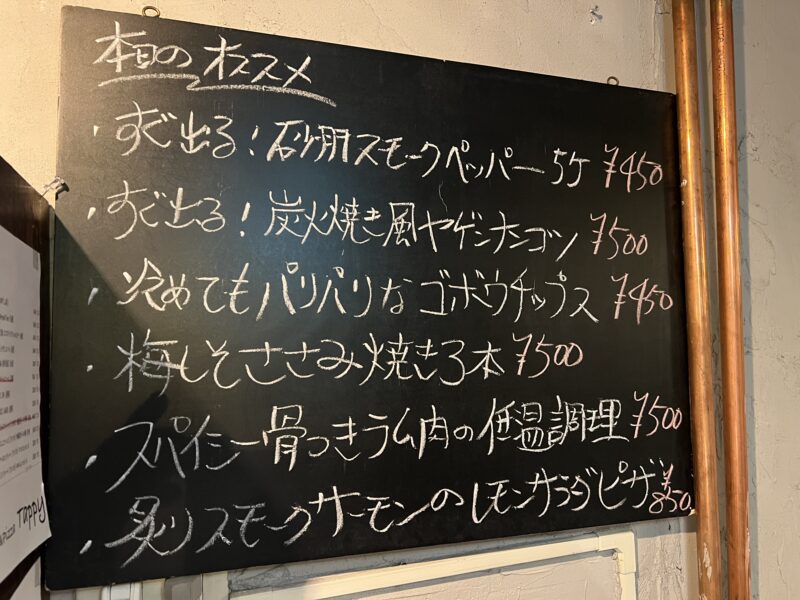 本日のオススメ
・すぐ出る!砂肝スモークペッパー5ケ ¥450
・すぐ出る!炭火焼き風ヤゲンナンコツ ¥500
・冷めてもパリパリなゴボウチップス ¥450
・梅しそささみ焼き3本 ¥500
・スパイシー骨つきラム肉の低温調理 ¥500
・炙りスモークサーモンのレモンサラダピザ ¥850
Tappy